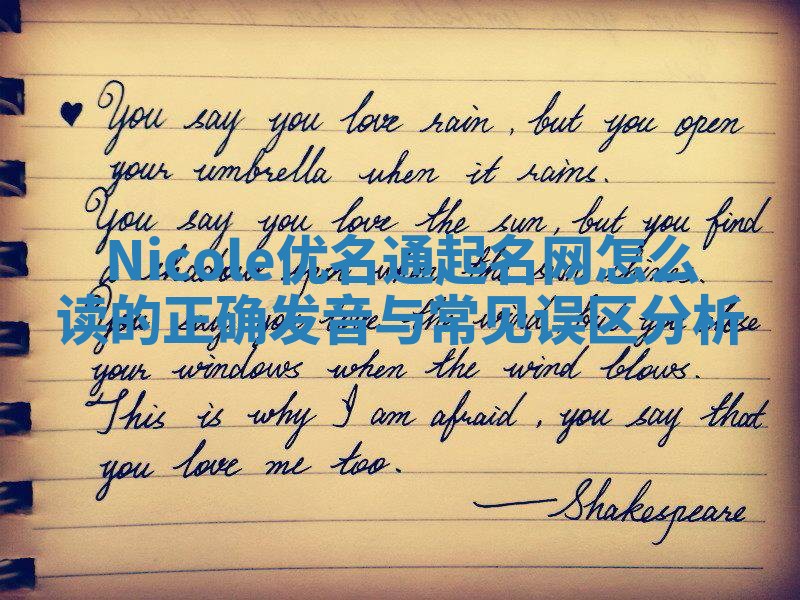 ♥ You say you love rain, but you open
your umbrella when it rains.
You say you love the sun, but you find
a shadow spot when the sun shines.
Nicole优名通起名网怎么
You say you love the wind, but you close
读的正确发音与常见误区分析
your windows when the wind blows.
This is why I am afraid, you say that
you love me too.
—Shakespeare